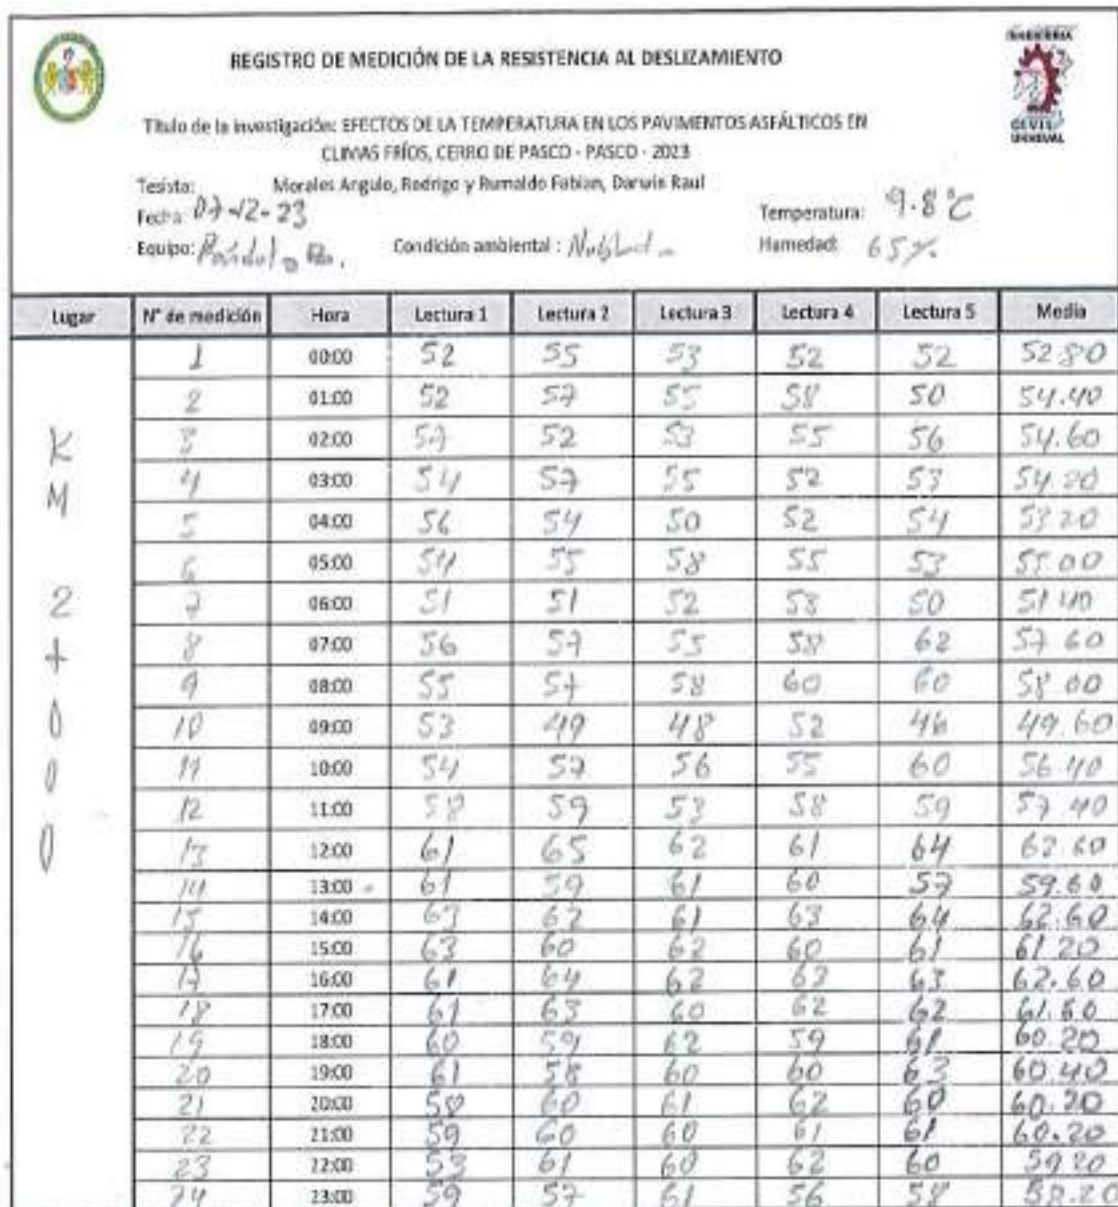 INGENIERIA
CIVIL
UNHEVAL
REGISTRO DE MEDICIÓN DE LA RESISTENCIA AL DESLIZAMIENTO
Título de la investigación: EFECTOS DE LA TEMPERATURA EN LOS PAVIMENTOS ASFÁLTICOS EN
CLIMAS FRÍOS, CERRO DE PASCO - PASCO - 2023
Tesista: Morales Angulo, Rodrigo y Rumaldo Fabian, Darwin Raul
Fecha: 07-12-23 Temperatura: 9.8°C
Equipo: Condición ambiental : Nublado Humedad: 65%
Lugar N° de medición Hora Lectura 1 Lectura 2 Lectura 3 Lectura 4 Lectura 5 Media
KM 2+000
1 00:00 52 55 53 52 52 52.80
2 01:00 52 57 55 58 50 54.40
3 02:00 57 52 53 55 56 54.60
4 03:00 54 57 55 52 53 54.20
5 04:00 56 54 50 52 54 53.20
6 05:00 54 55 58 55 53 55.00
7 06:00 51 51 52 53 50 51.40
8 07:00 56 57 55 58 62 57.60
9 08:00 55 57 58 60 60 58.00
10 09:00 53 49 48 52 46 49.60
11 10:00 54 57 56 55 60 56.40
12 11:00 58 59 53 58 59 57.40
13 12:00 61 65 62 61 64 62.60
14 13:00 61 59 61 60 57 59.60
15 14:00 63 62 61 63 64 62.60
16 15:00 63 60 62 60 61 61.20
17 16:00 61 64 62 63 63 62.60
18 17:00 61 63 60 62 62 61.60
19 18:00 60 59 62 59 61 60.20
20 19:00 61 58 60 60 63 60.40
21 20:00 58 60 61 62 60 60.20
22 21:00 59 60 60 61 61 60.20
23 22:00 53 61 60 62 60 59.20
24 23:00 59 57 61 56 58 58.20